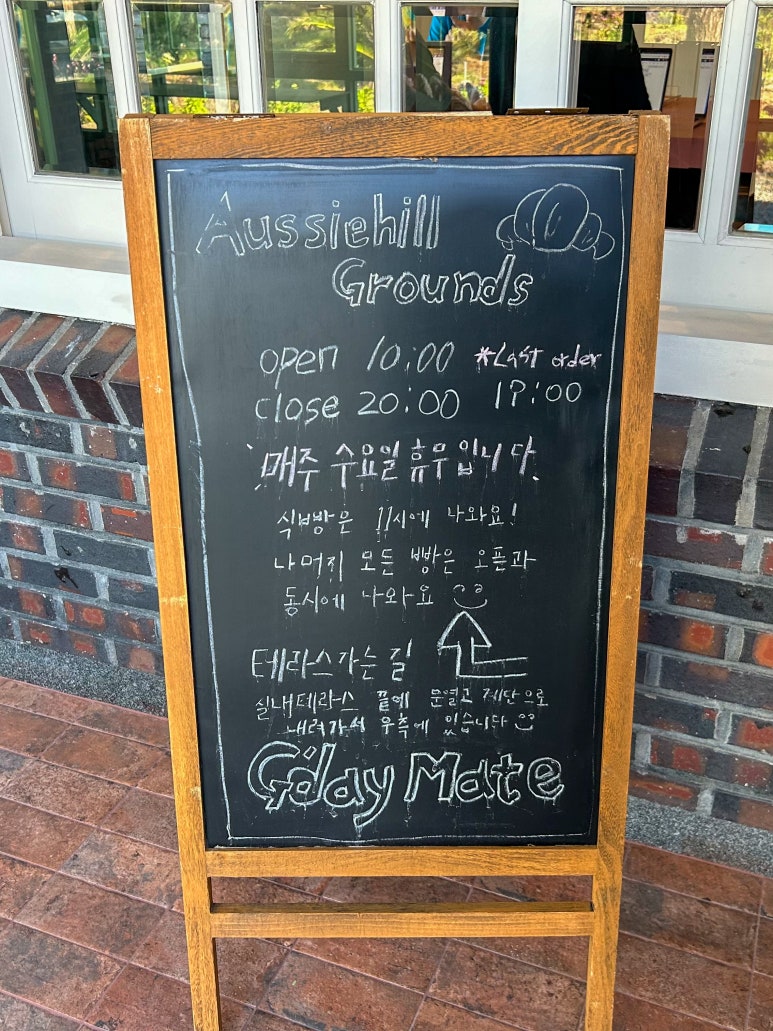 Aussiehill
Grounds
open 10:00 *Last order
close 20:00 19:00
매주 수요일 휴무입니다.
식빵은 11시에 나와요!
나머지 모든 빵은 오픈과
동시에 나와요
테라스가는길
실내테라스 끝에 문열고 계단으로
내려가서 우측에 있습니다
G'day Mate